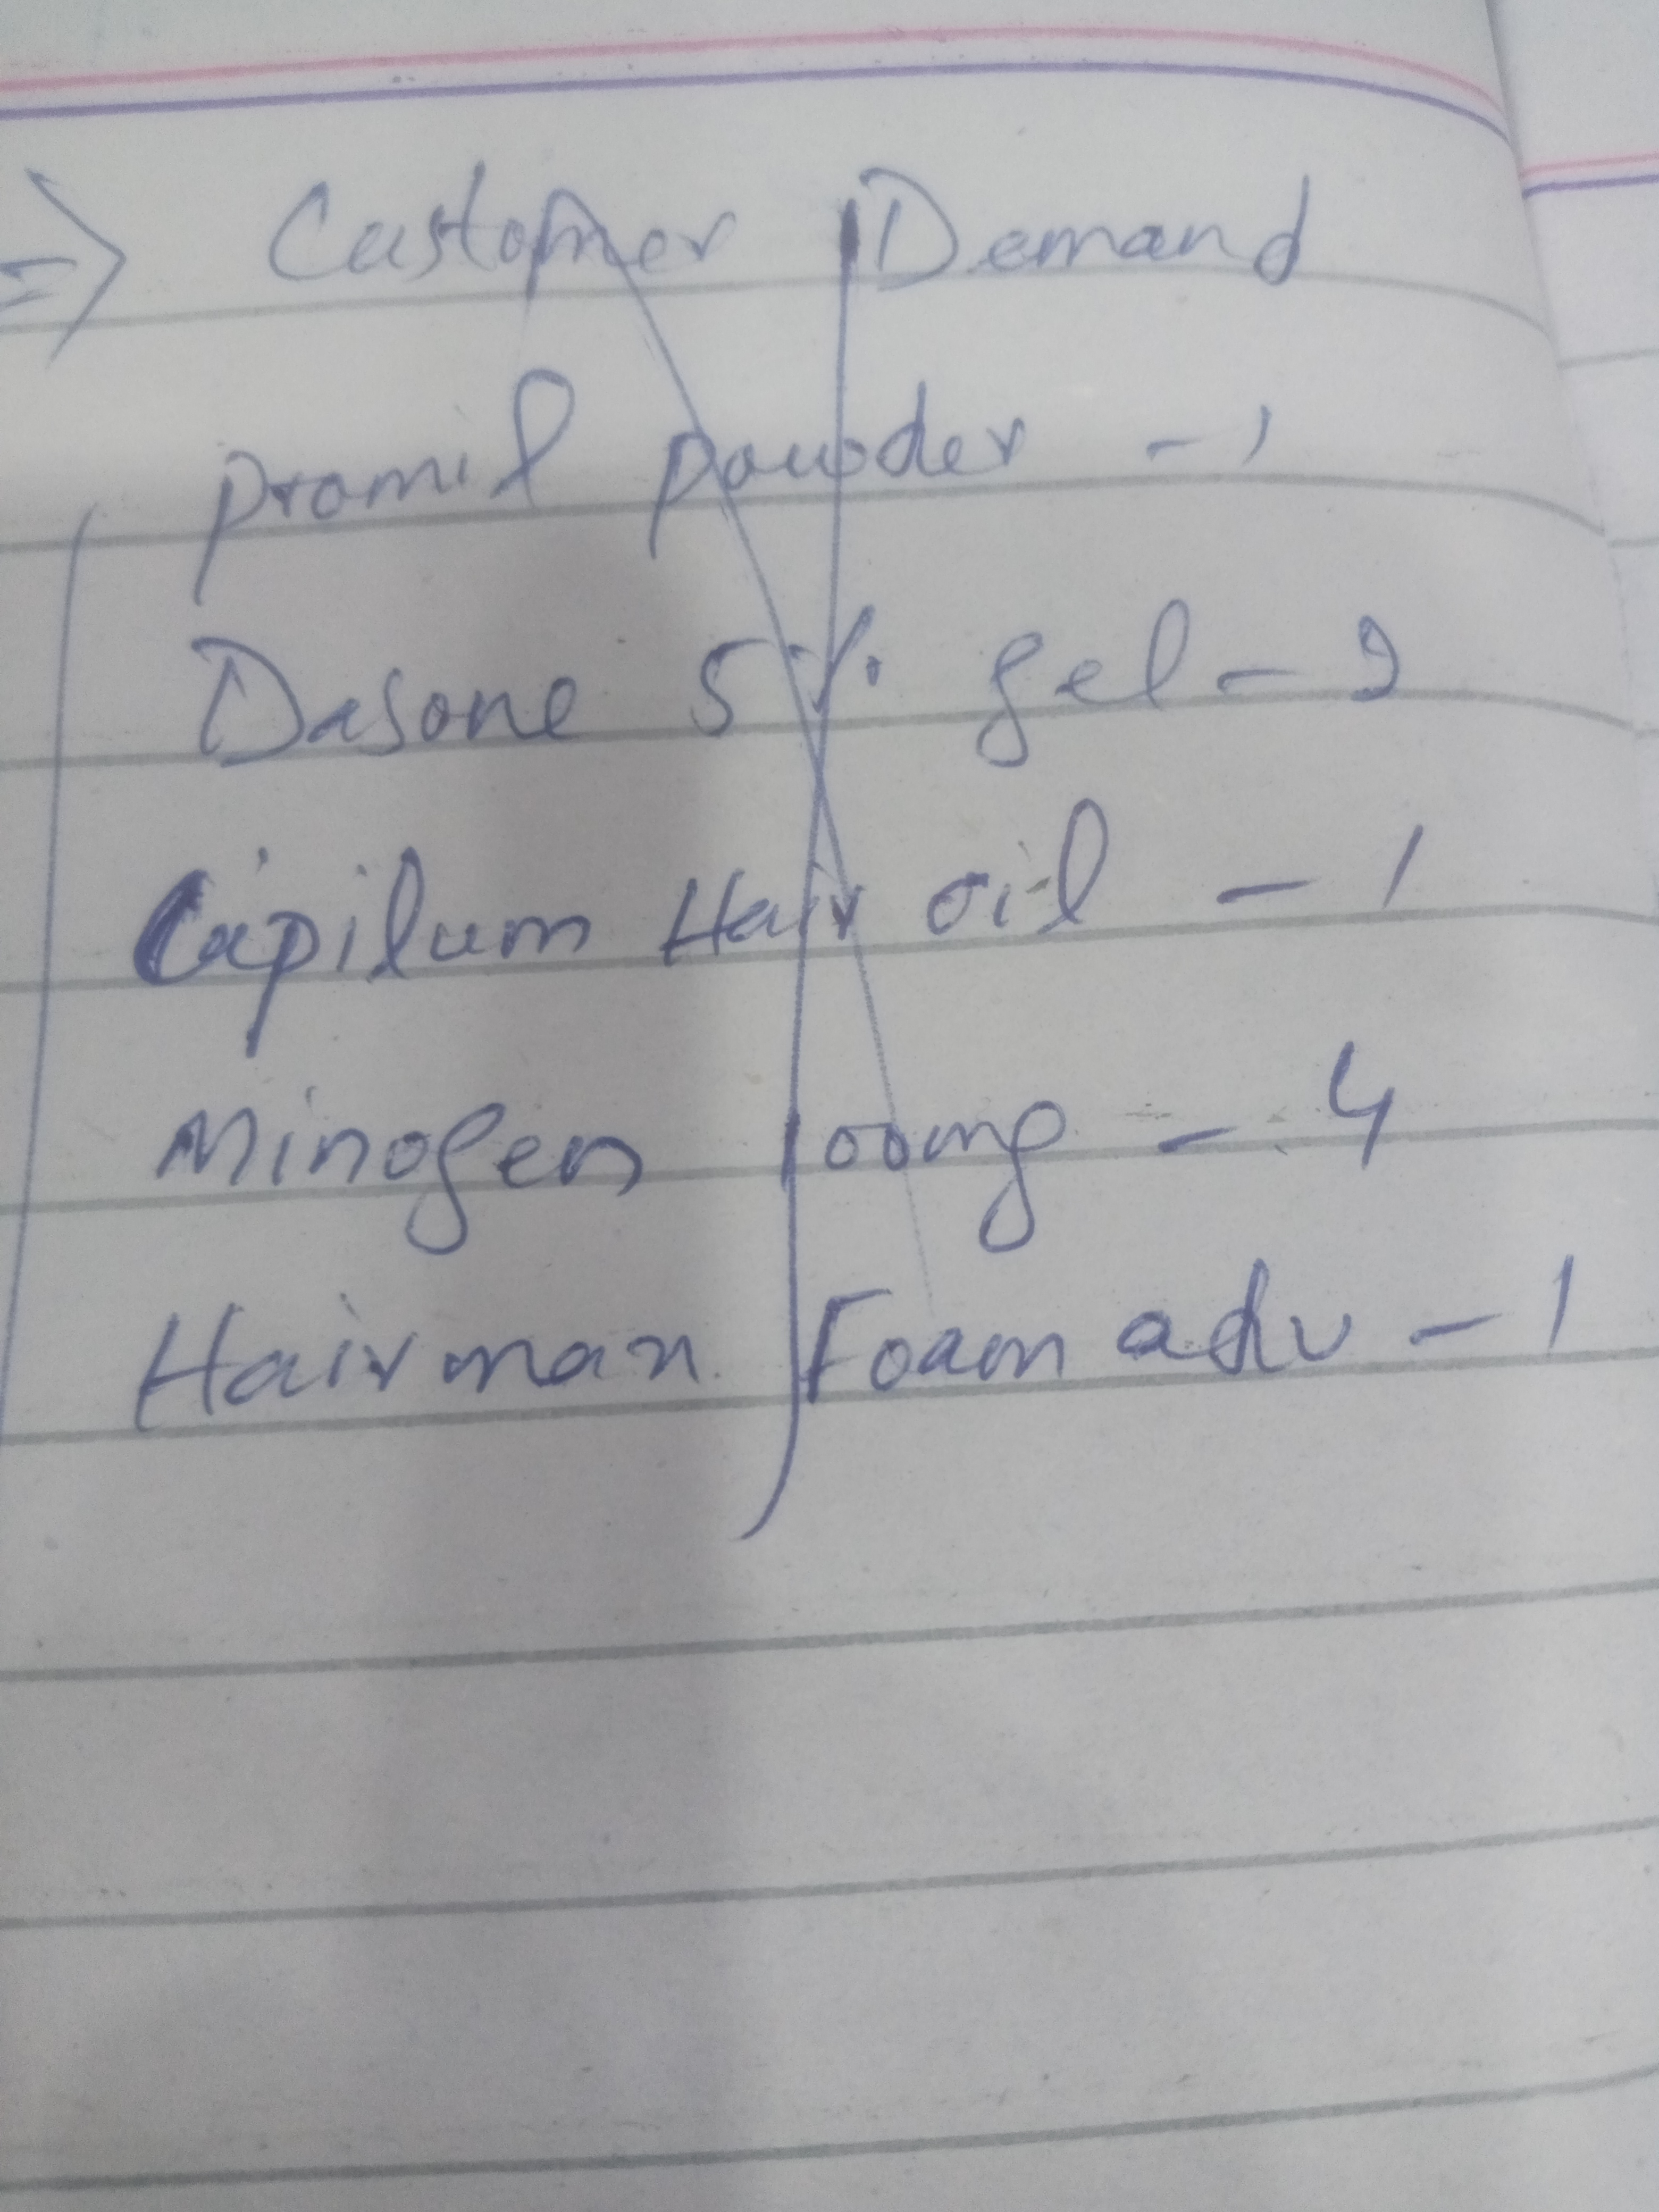 => Customer Demand
promil powder - 1
Dasone 5% gel - 2
Capilum Hair oil - 1
Minogen 100mg - 4
Hairman Foam adv - 1